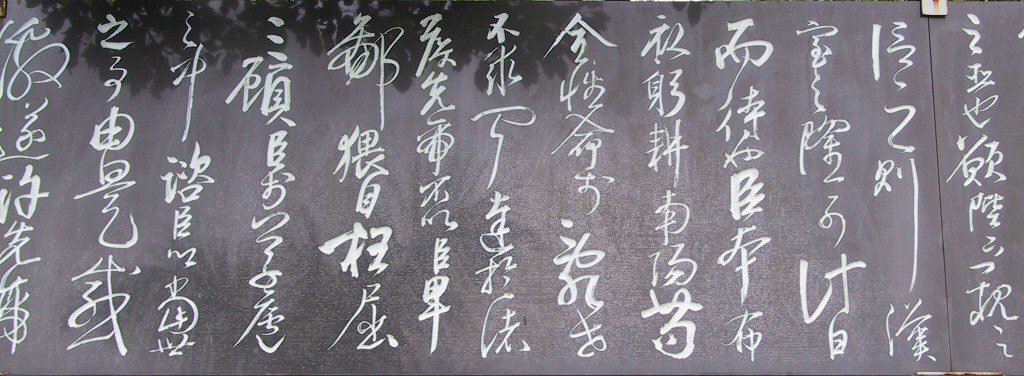 之臣也願陛下親之
信之則漢
室之隆可計日
而待也臣本布
衣躬耕南陽苟
全性命於亂世
不求聞達於諸
侯先帝不以臣卑
鄙猥自枉屈
三顧臣於草廬
之中諮臣以當世
之事由是感
激遂許先帝